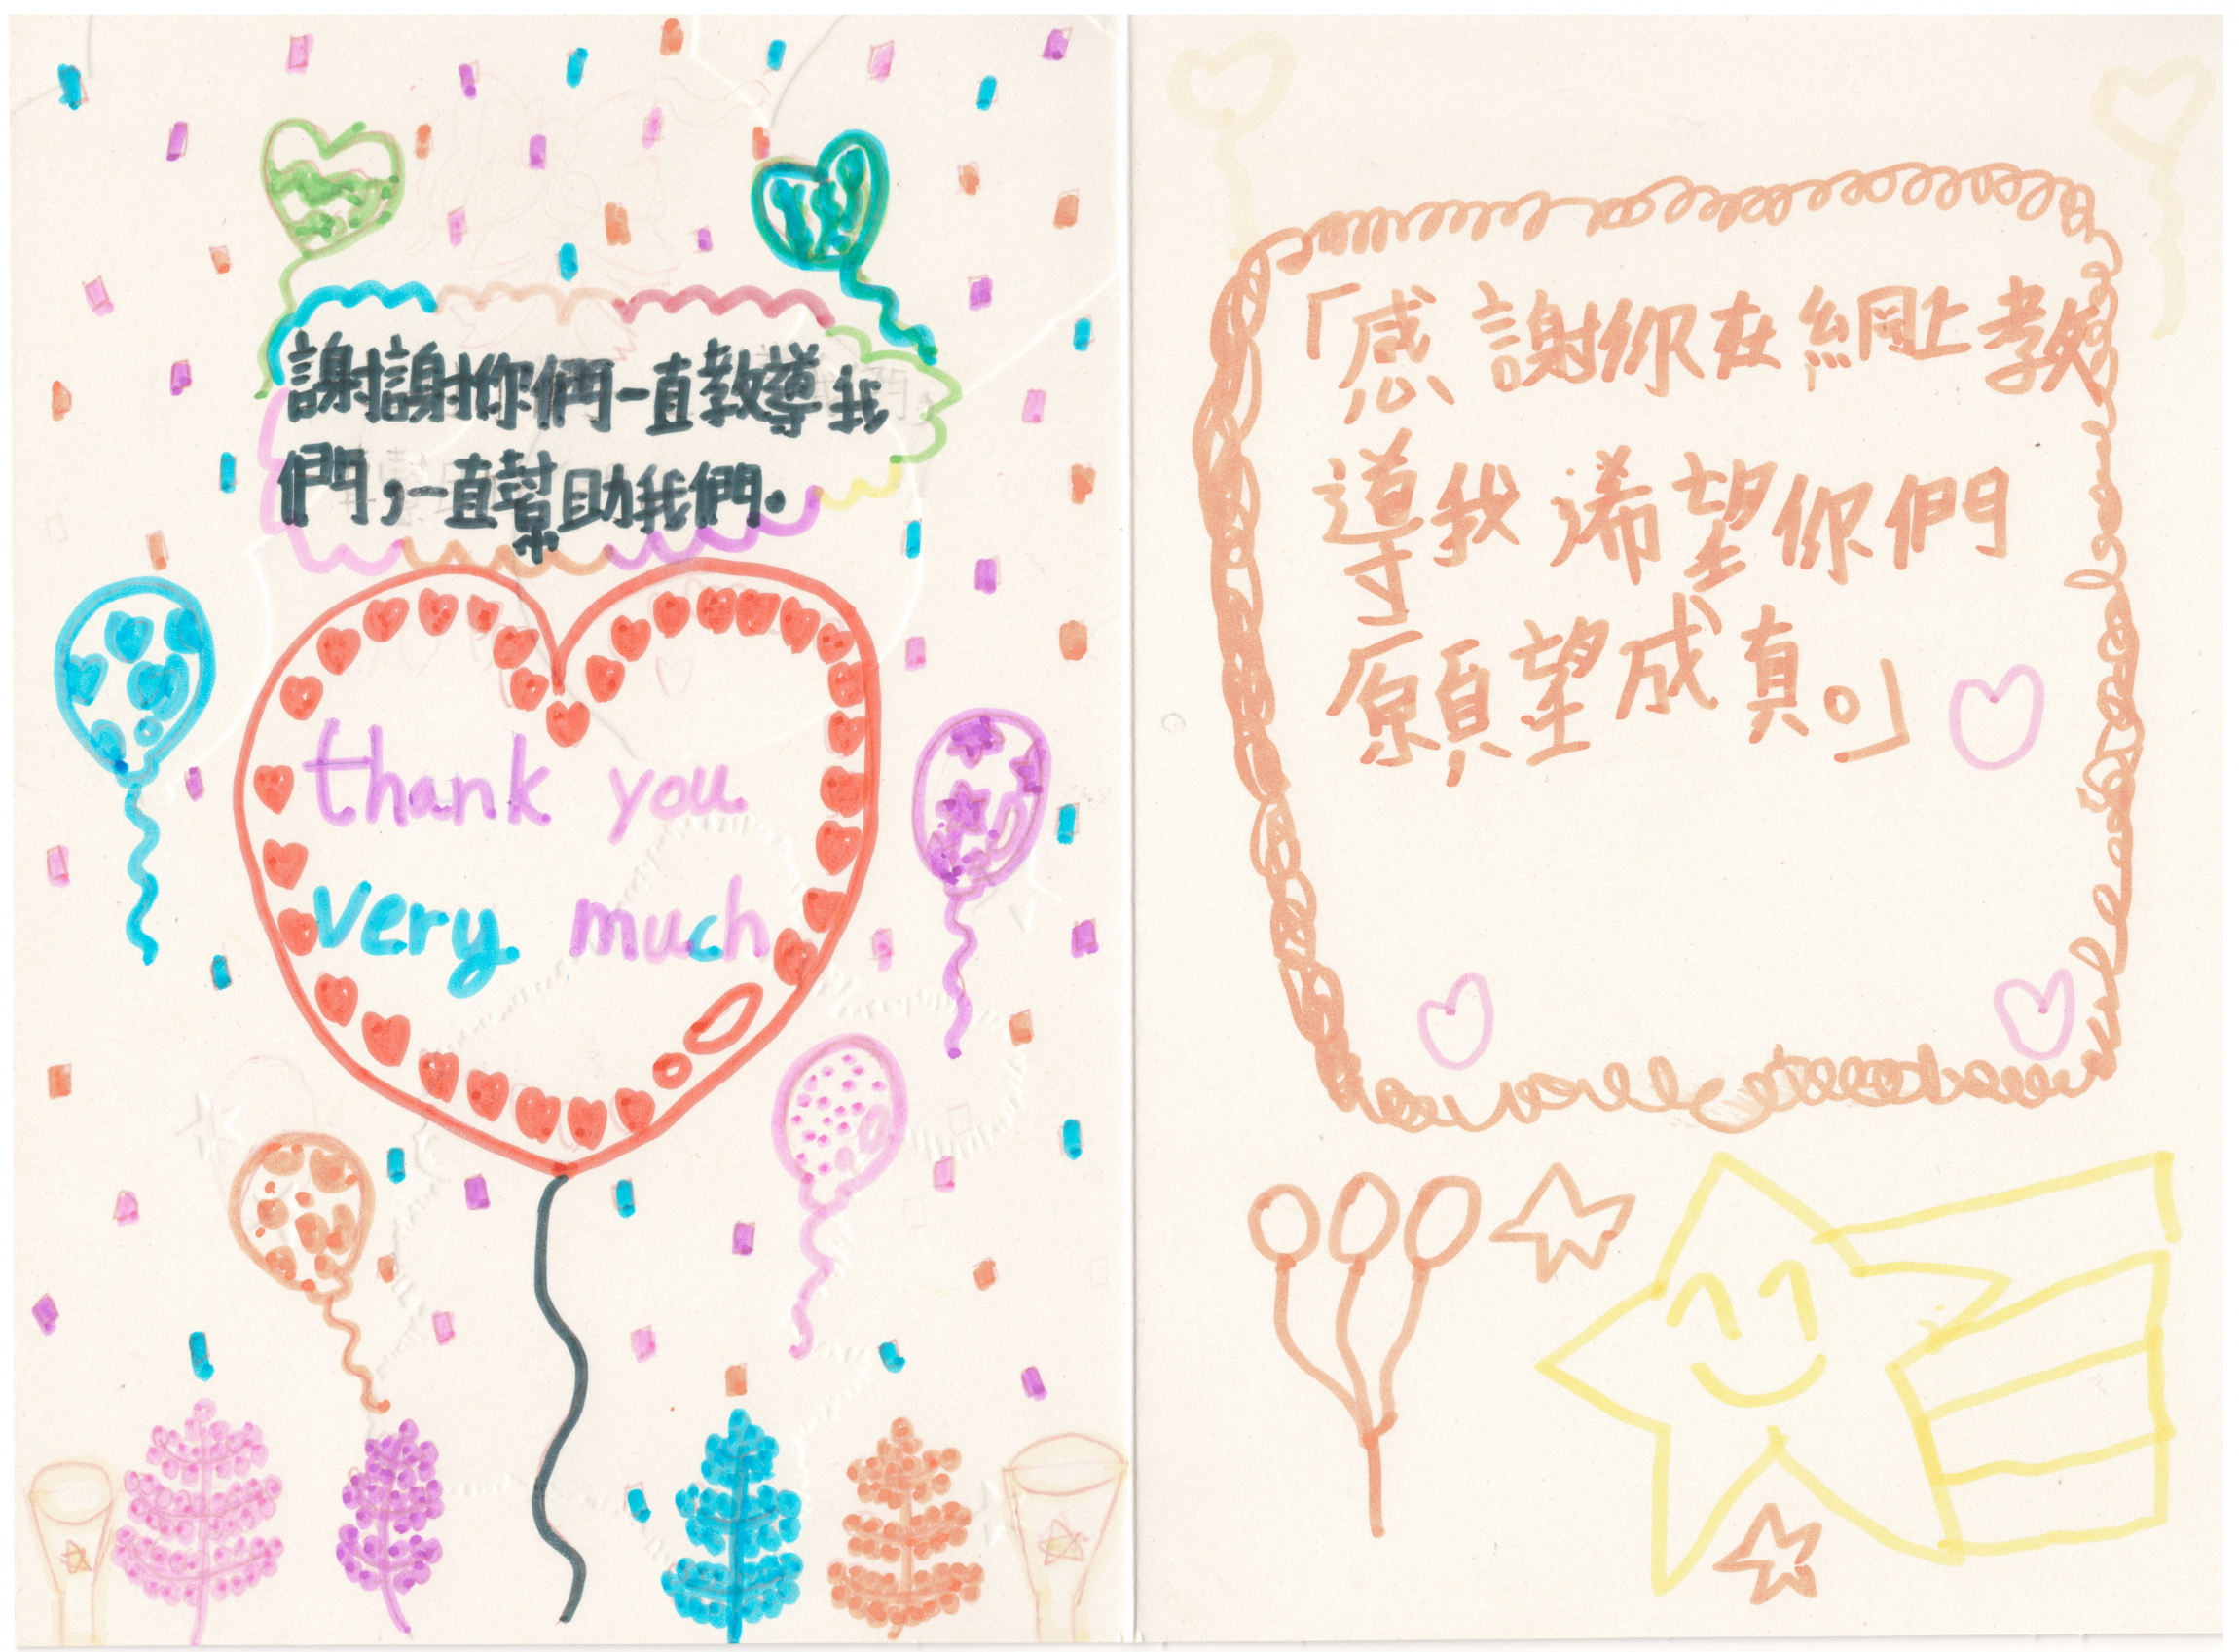 謝謝你們一直教導我
們，一直幫助我們。
thank you
very much
「感謝你在網上教
導我希望你們
願望成真。」